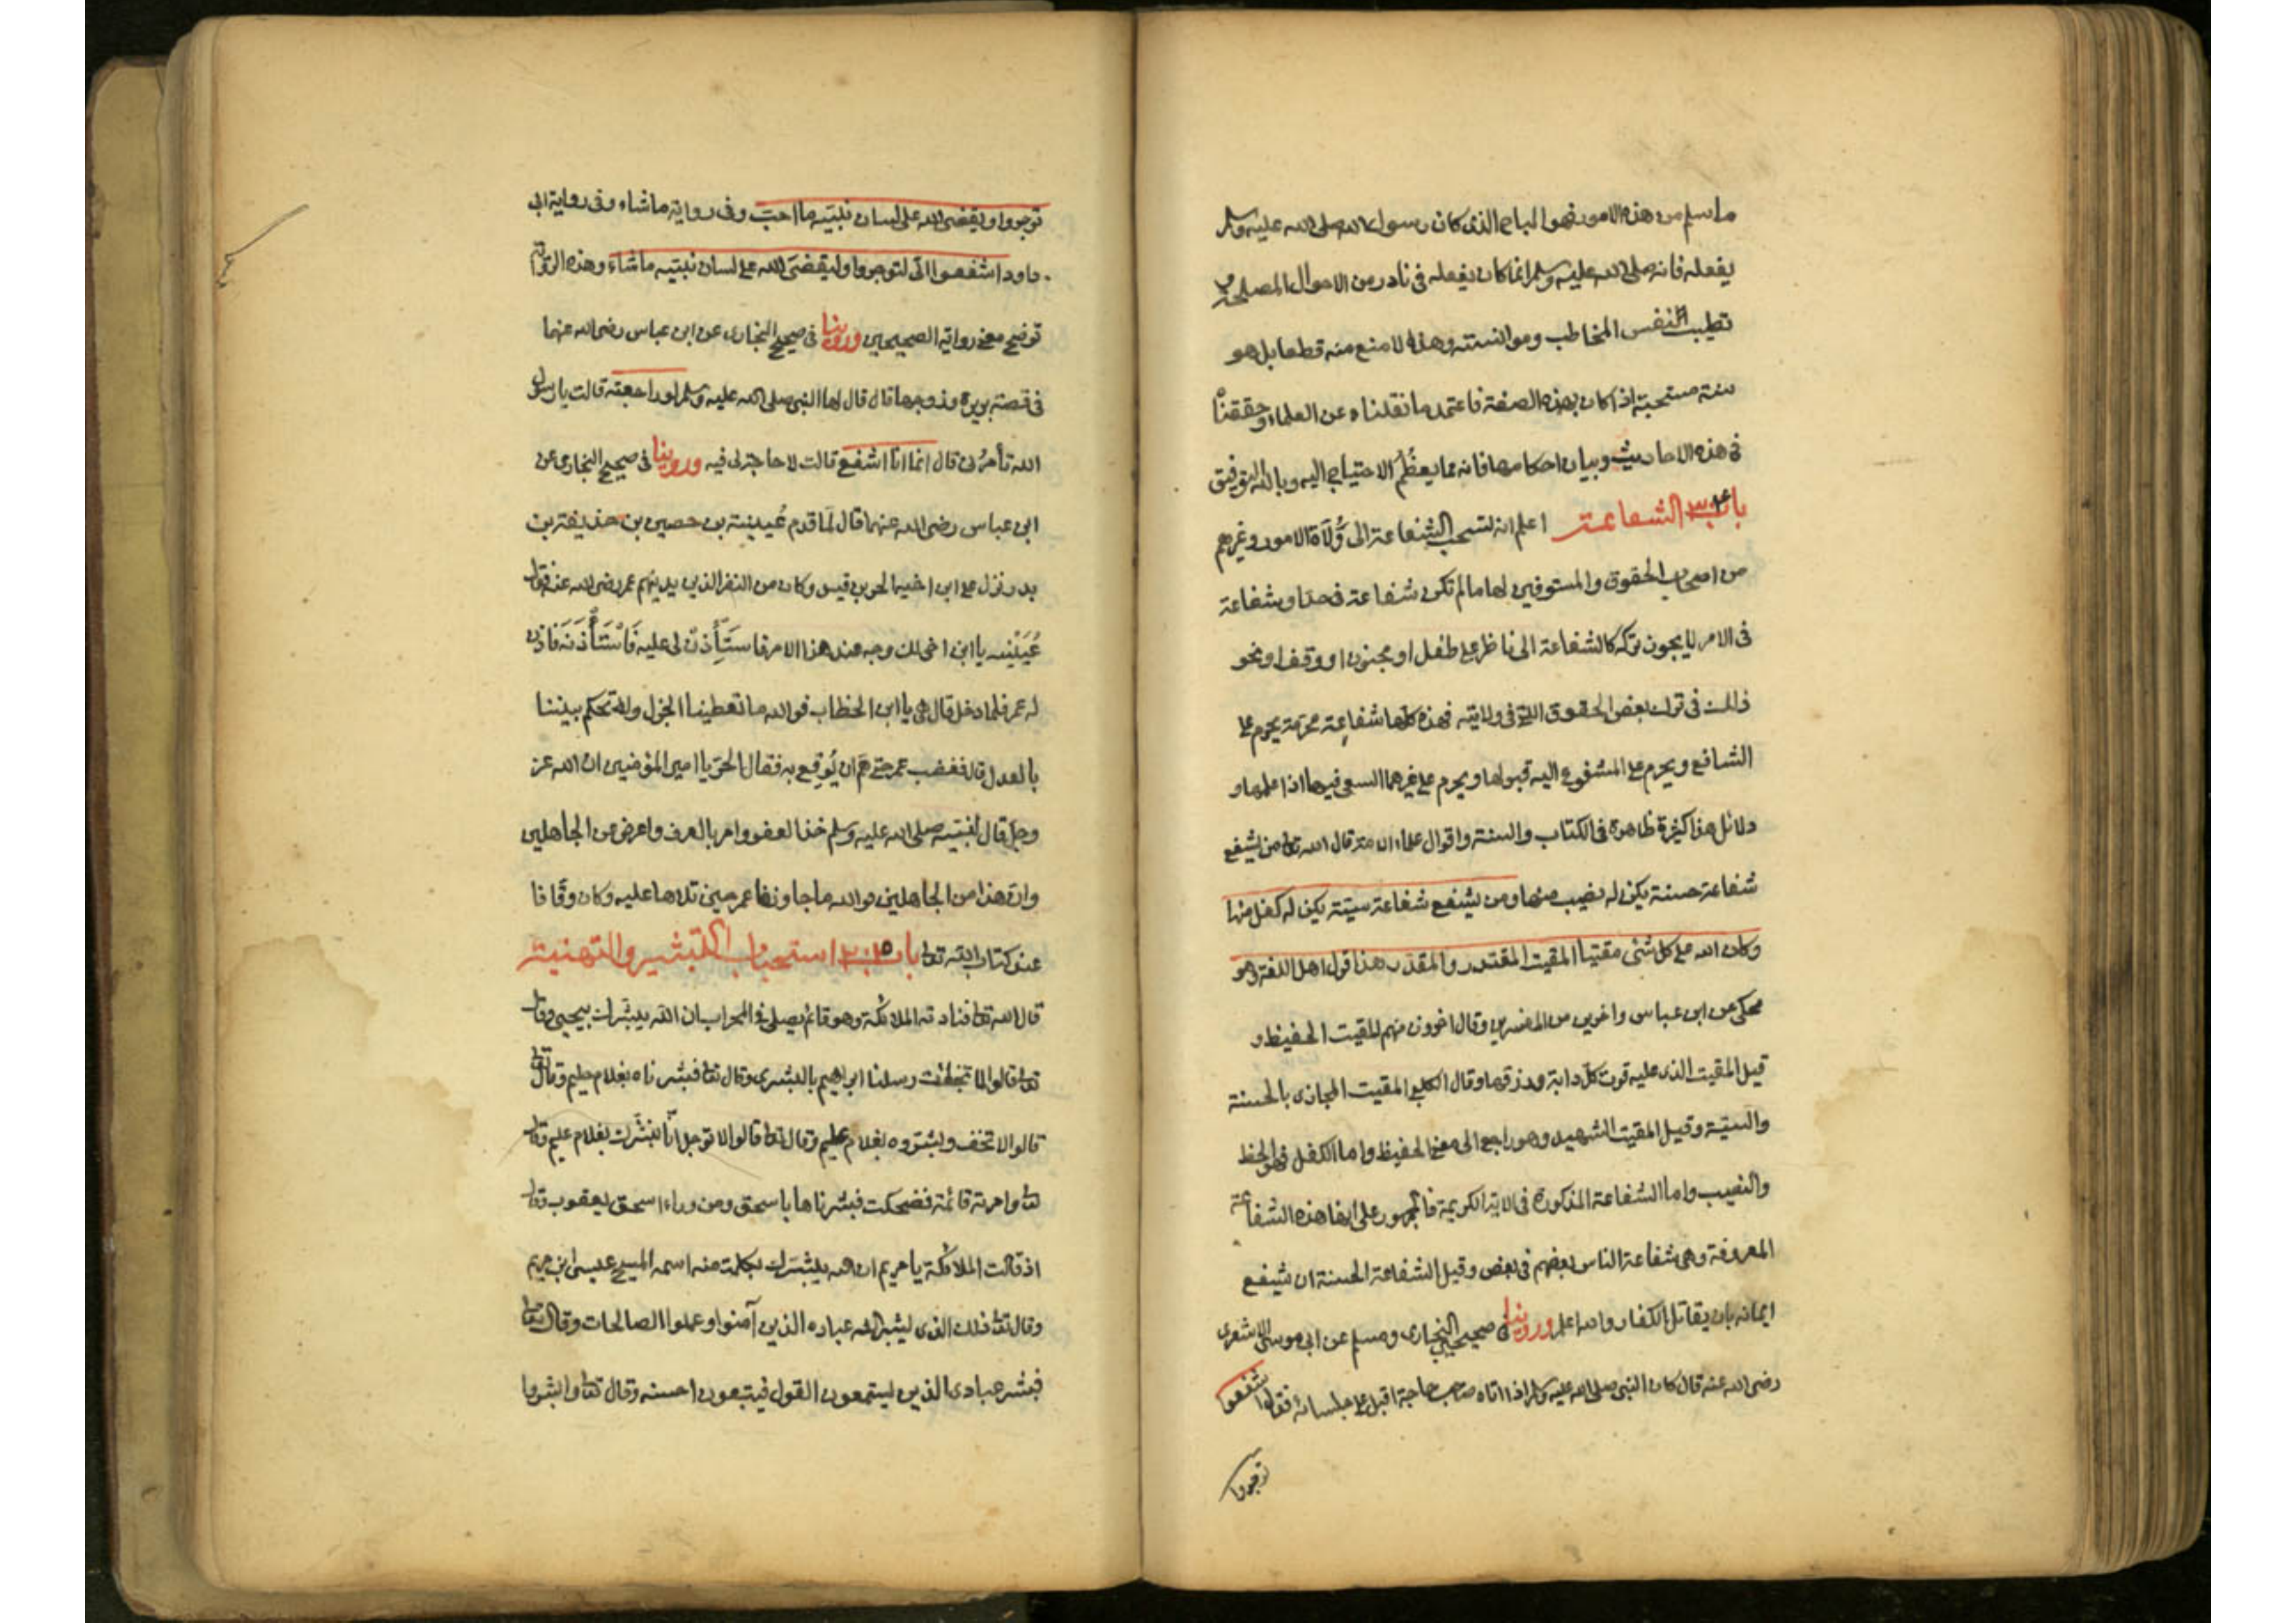 ما سلم من هذه الامور فهو المباح الذى كان رسول الله صلى الله عليه وسلم
يفعله فانه صلى الله عليه وسلم انما كان يفعله فى نادر من الاحوال لمصلحة و
تطييب النفس المخاطب وموانسته وهذا لا منع منه قطعا بل هو
سنة مستحبة اذا كان بهذه الصفة فاعتمد ما نقلناه عن العلماء وحققناه
فى هذه الاحاديث وبيان احكامها فانه مما يعظُم الاحتياج اليه وبالله التوفيق
باب الشفاعة اعلم انه تستحب الشفاعة الى وُلَاة الامور وغيرهم
من اصحاب الحقوق والمستوفين لها ما لم تكن شفاعة فى حد او شفاعة
فى الامر لا يجوز تركه كالشفاعة الى ناظر على طفل او مجنون او وقف او نحو
ذالك فى ترك بعض الحقوق التى فى ولايته فهذه كلها شفاعة محرمة يحرم على
الشافع ويحرم على المشفوع اليه قبولها ويحرم على غيرهما السعى فيها اذا علمها و
دلائل هذا كثيرة ظاهرة فى الكتاب والسنة واقوال علماء الامة قال الله تعا من يشفع
شفاعة حسنة يكن له نصيب منها ومن يشفع شفاعة سيئة يكن له كفل منها
وكان الله على كل شئ مقيتا المقيت المقتدر والمقدر هذا قول اهل اللغة وهو
محكى عن ابن عباس واخرين من المفسرين وقال اخرون منهم المقيت الحفيظ و
قيل المقيت الذى عليه قوت كل دابة ورزقها وقال الكلبى المقيت المجازى بالحسنة
والسيئة وقيل المقيت الشهيد وهو راجع الى معنى الحفيظ واما الكفل فهو الحظ
والنصيب واما الشفاعة المذكورة فى الاية الكريمة فالجمهور على انها هذه الشفاعة
المعروفة وهى شفاعة الناس بعضهم فى بعض وقيل الشفاعة الحسنة ان يشفع
ايمانه بان يقاتل الكفار والله اعلم وروينا فى صحيحى البخارى ومسلم عن ابى موسى الاشعرى
رضى الله عنه قال كان النبى صلى الله عليه وسلم اذا اتاه صاحب حاجة اقبل على جلسائه فقال اشفعوا
توجروا
توجروا ويقضى الله على لسان نبيّه ما احبّ وفى رواية ما شاء وفى رواية ابى
داود اشفعوا الىّ لتوجروا وليقضى الله على لسان نبيّه ما شاء وهذه الرواية
توضح معنى رواية الصحيحين وروينا فى صحيح البخارى عن ابن عباس رضى الله عنهما
فى قصة بريرة وزوجها قال قال لها النبى صلى الله عليه وسلم لو راجعته قالت يا رسول
الله تأمرُنى قال انما انا اشفع قالت لا حاجة لى فيه وروينا فى صحيح البخارى عن
ابن عباس رضى الله عنهما قال لمّا قدم عُيينة بن حصين بن حذيفة بن
بدر نزل على ابن اخيه الحر بن قيس وكان من النفر الذين يدنيهم عمر رضى الله عنه فقال
عُيَيْنة يا ابن اخى لك وجه عند هذا الامر فاسْتَأْذِنْ لى عليه فَاسْتَأْذَنَه فاذن
له عمر فلما دخل قال هى يا ابن الخطاب فوالله ما تعطينا الجزل ولا تحكم بيننا
بالعدل قال فغضب عمر حتى همّ ان يُوقِع به فقال الحرّ يا امير المؤمنين ان الله عز
وجل قال لنبيّه صلى الله عليه وسلم خذ العفو وامر بالعرف واعرض عن الجاهلين
وان هذا من الجاهلين فوالله ما جاوزها عمر حين تلاها عليه وكان وقّافا
عند كتاب الله تعا باب استحباب التبشير والتهنية
قال الله تعا فنادته الملائكة وهو قائم يصلى فى المحراب ان الله يبشّرك بيحيى وقال
تعا قالوا لما جاءت رسلنا ابراهيم بالبشرى وقال تعا فبشرناه بغلام حليم وقال تعا
قالوا لا تخف وبشّروه بغلام عليم وقال تعا قالوا لا توجل انّا نبشّرك بغلام عليم وقال
تعا وامرته قائمة فضحكت فبشرناها باسحق ومن وراء اسحق يعقوب وقال
اذ قالت الملائكة يا مريم ان الله يبشّرك بكلمة منه اسمه المسيح عيسى ابن مريم
وقال تعا ذلك الذى يبشر الله عباده الذين آمنوا وعملوا الصالحات وقال تعا
فبشر عبادى الذين يستمعون القول فيتبعون احسنه وقال تعا وابشروا